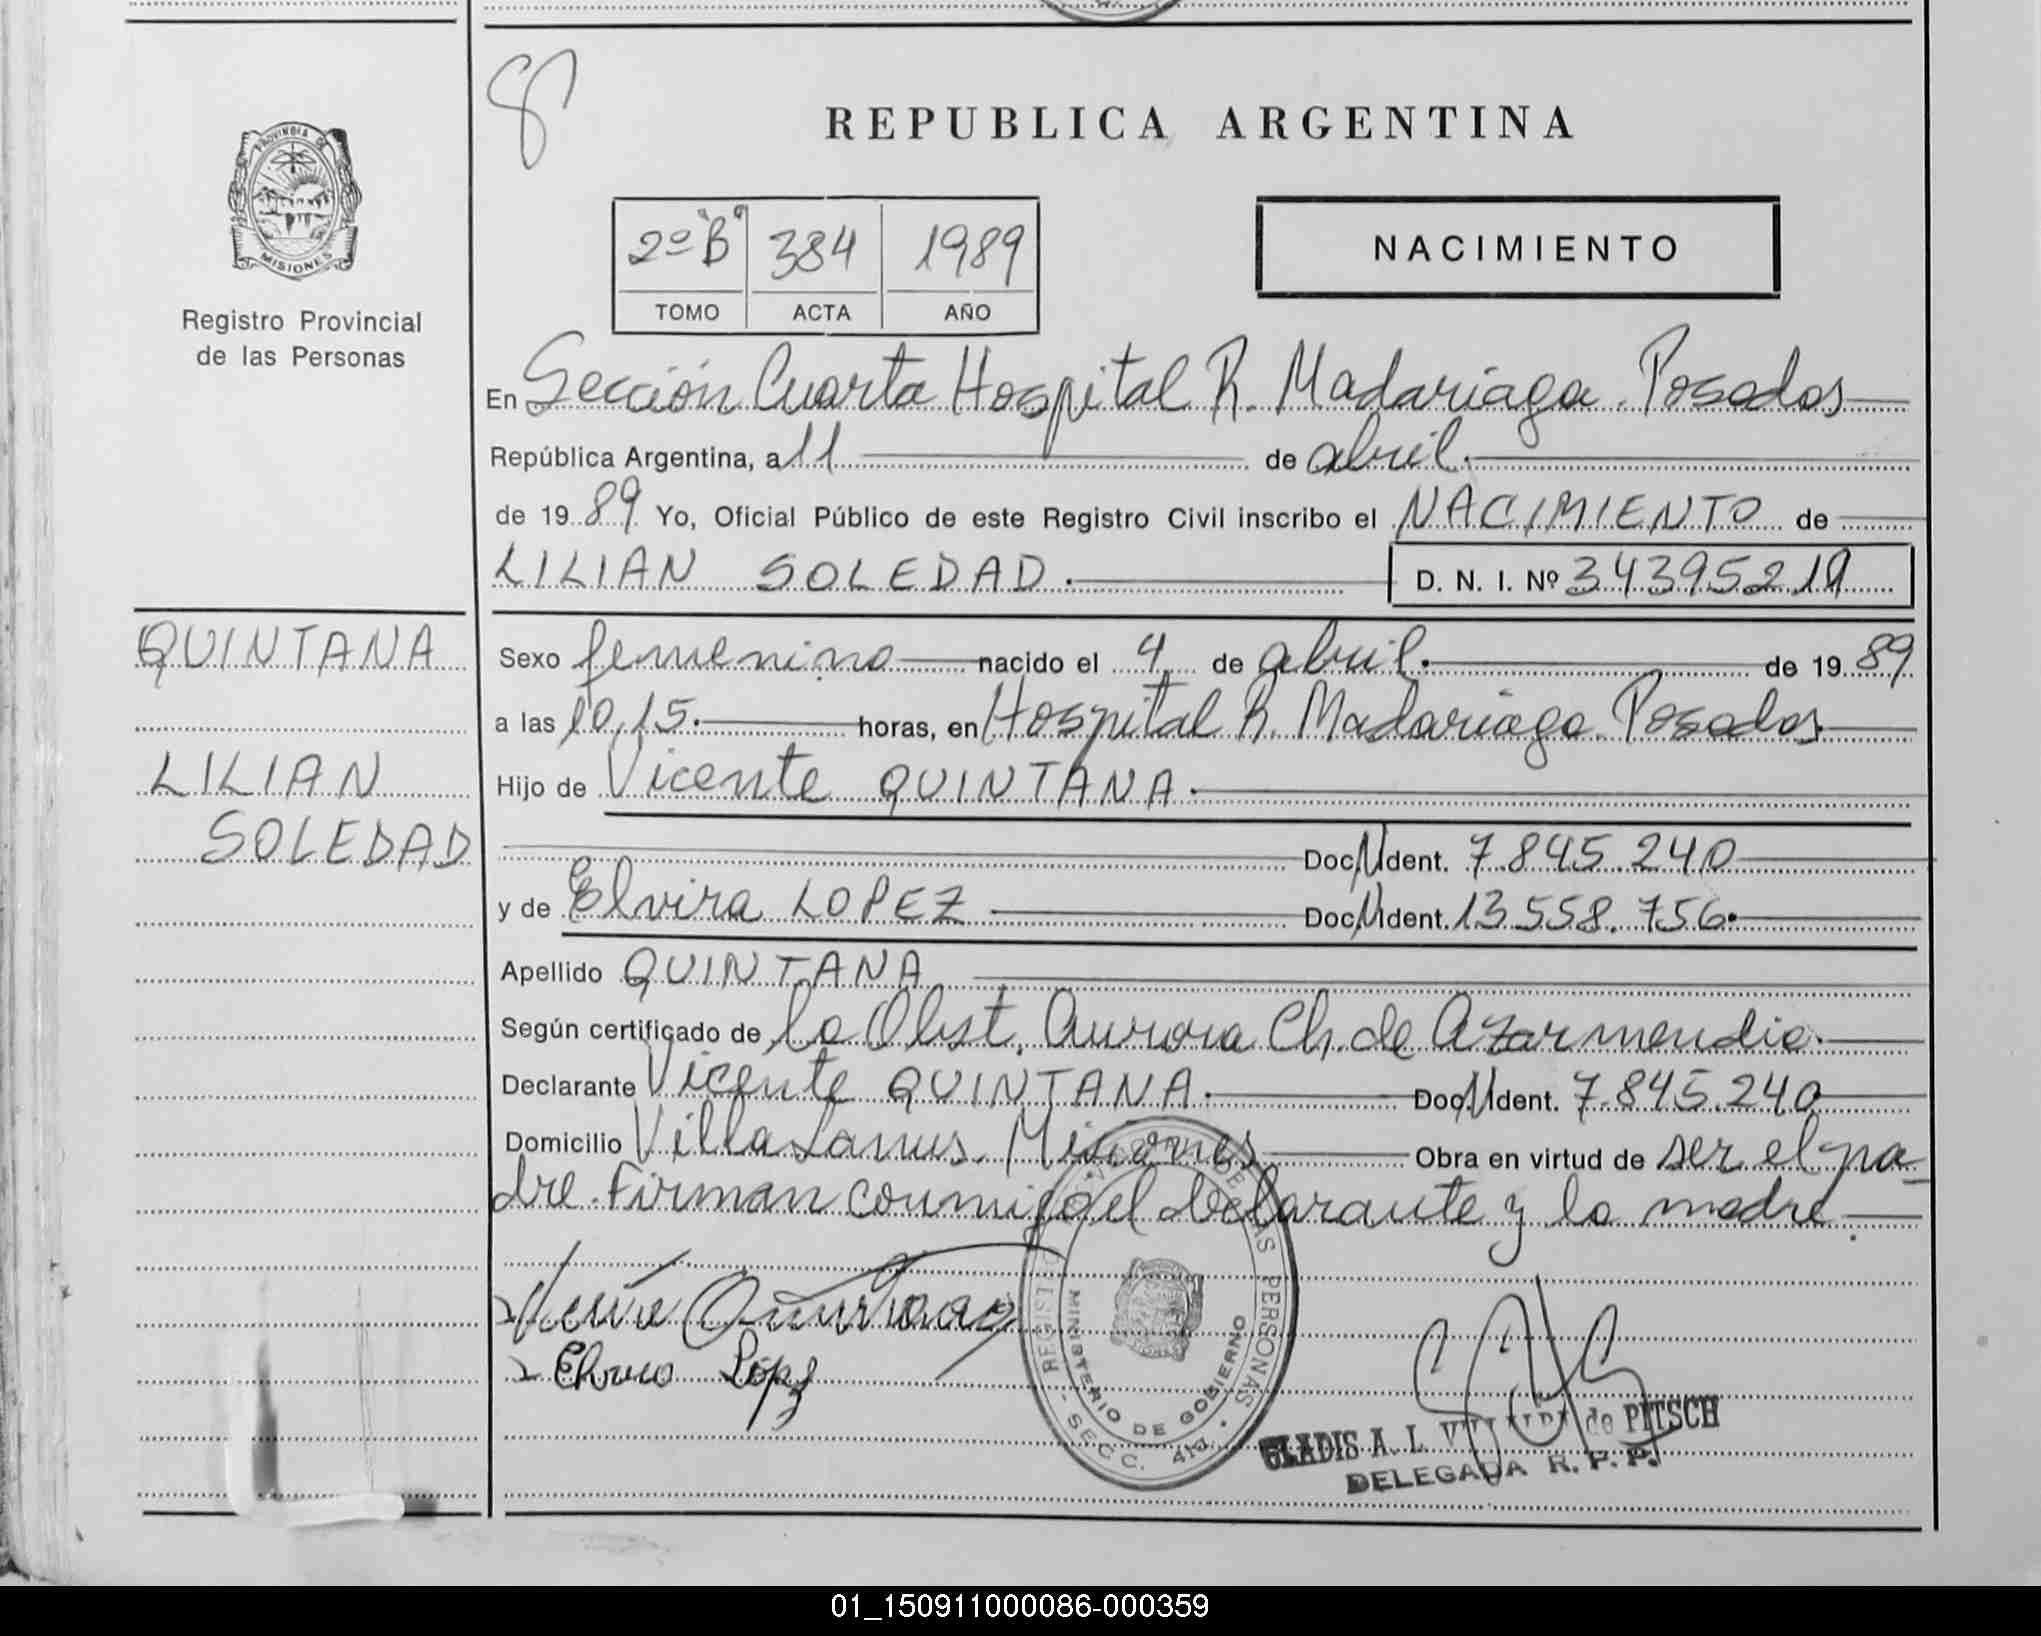 8
REPUBLICA ARGENTINA
PROVINCIA DE MISIONES
Registro Provincial
de las Personas
2º "B" 384 1989
TOMO ACTA AÑO
NACIMIENTO
En Sección Cuarta Hospital R. Madariaga. Posadas
República Argentina, a 11 de abril.
de 1989 Yo, Oficial Público de este Registro Civil inscribo el NACIMIENTO de
LILIAN SOLEDAD. D. N. I. Nº 34395219
QUINTANA
LILIAN
SOLEDAD
Sexo femenino nacido el 4 de abril. de 1989
a las 10,15. horas, en Hospital R. Madariaga. Posadas
Hijo de Vicente QUINTANA.
Doc. Ident. 7.845.240
y de Elvira LOPEZ Doc. Ident. 13.558.756.
Apellido QUINTANA
Según certificado de la Obst. Aurora Ch. de Azarmendia.
Declarante Vicente QUINTANA. Doc. Ident. 7.845.240
Domicilio Villa Lanus. Misiones Obra en virtud de ser el pa-
dre. Firman conmigo el declarante y la madre.
REGISTRO DE LAS PERSONAS - SECC. 4ta.
MINISTERIO DE GOBIERNO
López
GLADIS A. L. de PITSCH
DELEGADA R. P. P.
01_150911000086-000359